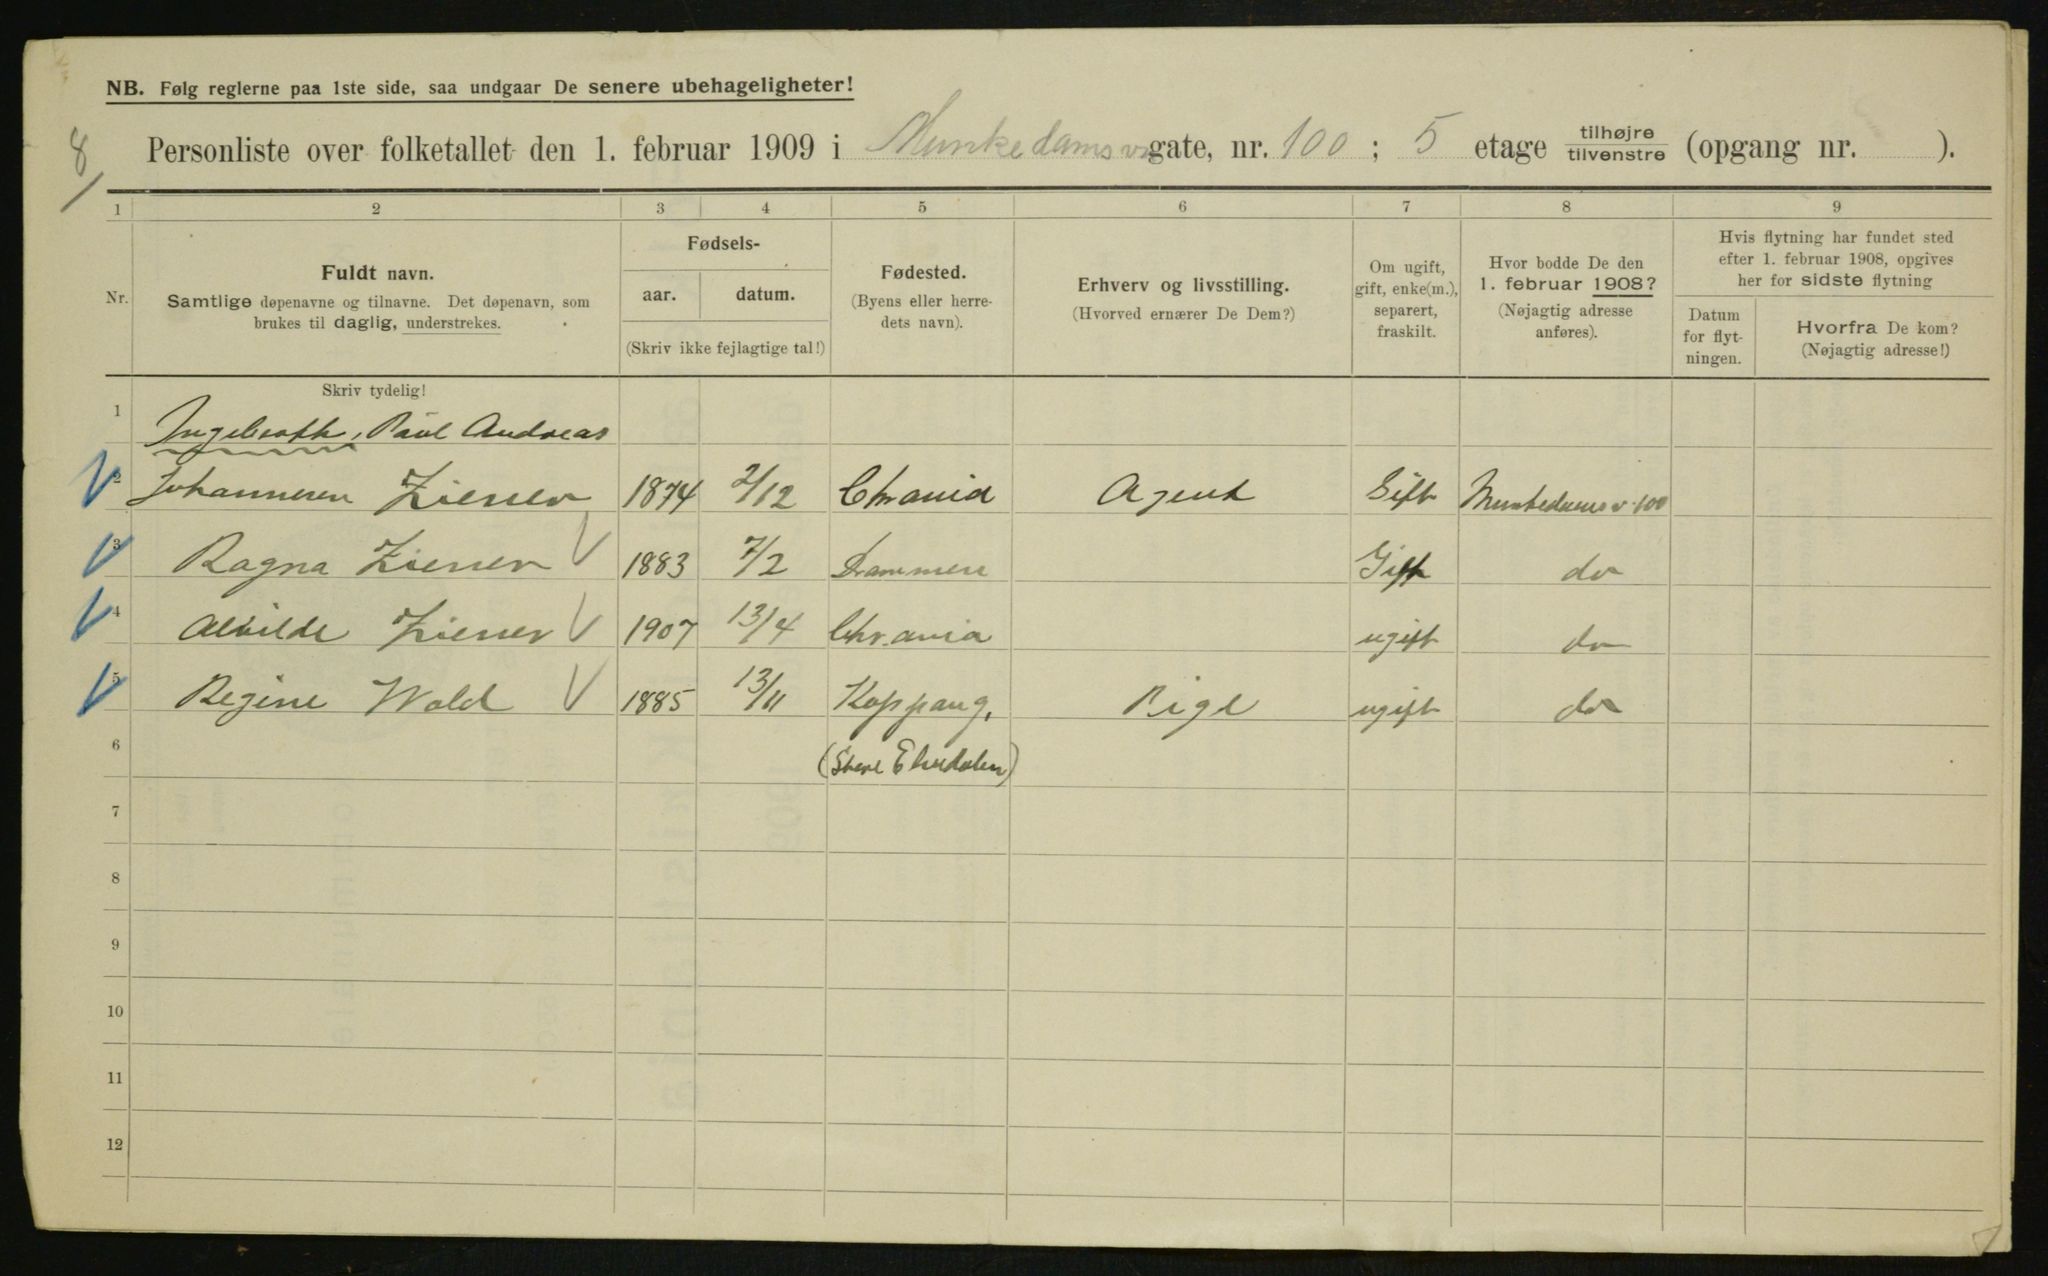 NB. Følg reglerne paa 1ste side, saa undgaar De senere ubehageligheter!
8/
Personliste over folketallet den 1. februar 1909 i Munkedamsvn gate, nr. 100 ; 5 etage tilhøjre tilvenstre (opgang nr. ).
1 2 3 4 5 6 7 8 9
Nr.
Fuldt navn.
Samtlige døpenavne og tilnavne. Det døpenavn, som
brukes til daglig, understrekes.
Fødsels-
aar. datum.
(Skriv ikke fejlagtige tal!)
Fødested.
(Byens eller herre-
dets navn).
Erhverv og livsstilling.
(Hvorved ernærer De Dem?)
Om ugift,
gift, enke(m.),
separert,
fraskilt.
Hvor bodde De den
1. februar 1908?
(Nøjagtig adresse
anføres).
Hvis flytning har fundet sted
efter 1. februar 1908, opgives
her for sidste flytning
Datum
for flyt-
ningen.
Hvorfra De kom?
(Nøjagtig adresse!)
Skriv tydelig!
1 Paul Andreas
2 Johannesen Ziener 1874 2/12 Chrania Agent Gift Munkedamsv. 100
3 Ragna Ziener 1883 7/2 Drammen Gift do
4 Alvilde Ziener 1907 13/4 Chr.ania ugift do
5 Regine Wold 1885 13/11 Koppang, Pige ugift do
6 (Store Elvedalen)
7
8
9
10
11
12